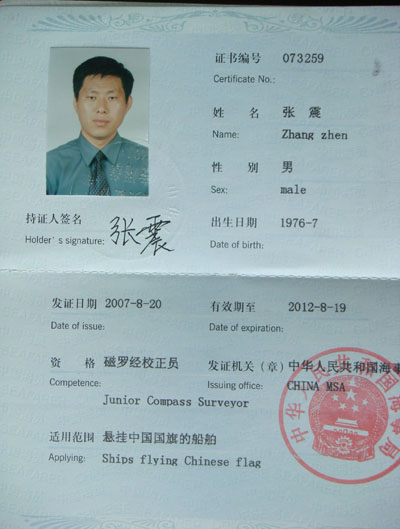 证书编号 073259
Certificate No.:
姓 名 张 震
Name: Zhang zhen
性 别 男
Sex: male
持证人签名 张震
Holder's signature:
出生日期 1976-7
Date of birth:
发证日期 2007-8-20
Date of issue:
有效期至 2012-8-19
Date of expiration:
资 格 磁罗经校正员
Competence:
Junior Compass Surveyor
发证机关(章) 中华人民共和国海事
Issuing office: CHINA MSA
适用范围 悬挂中国国旗的船舶
Applying: Ships flying Chinese flag
中华人民共和国海事局